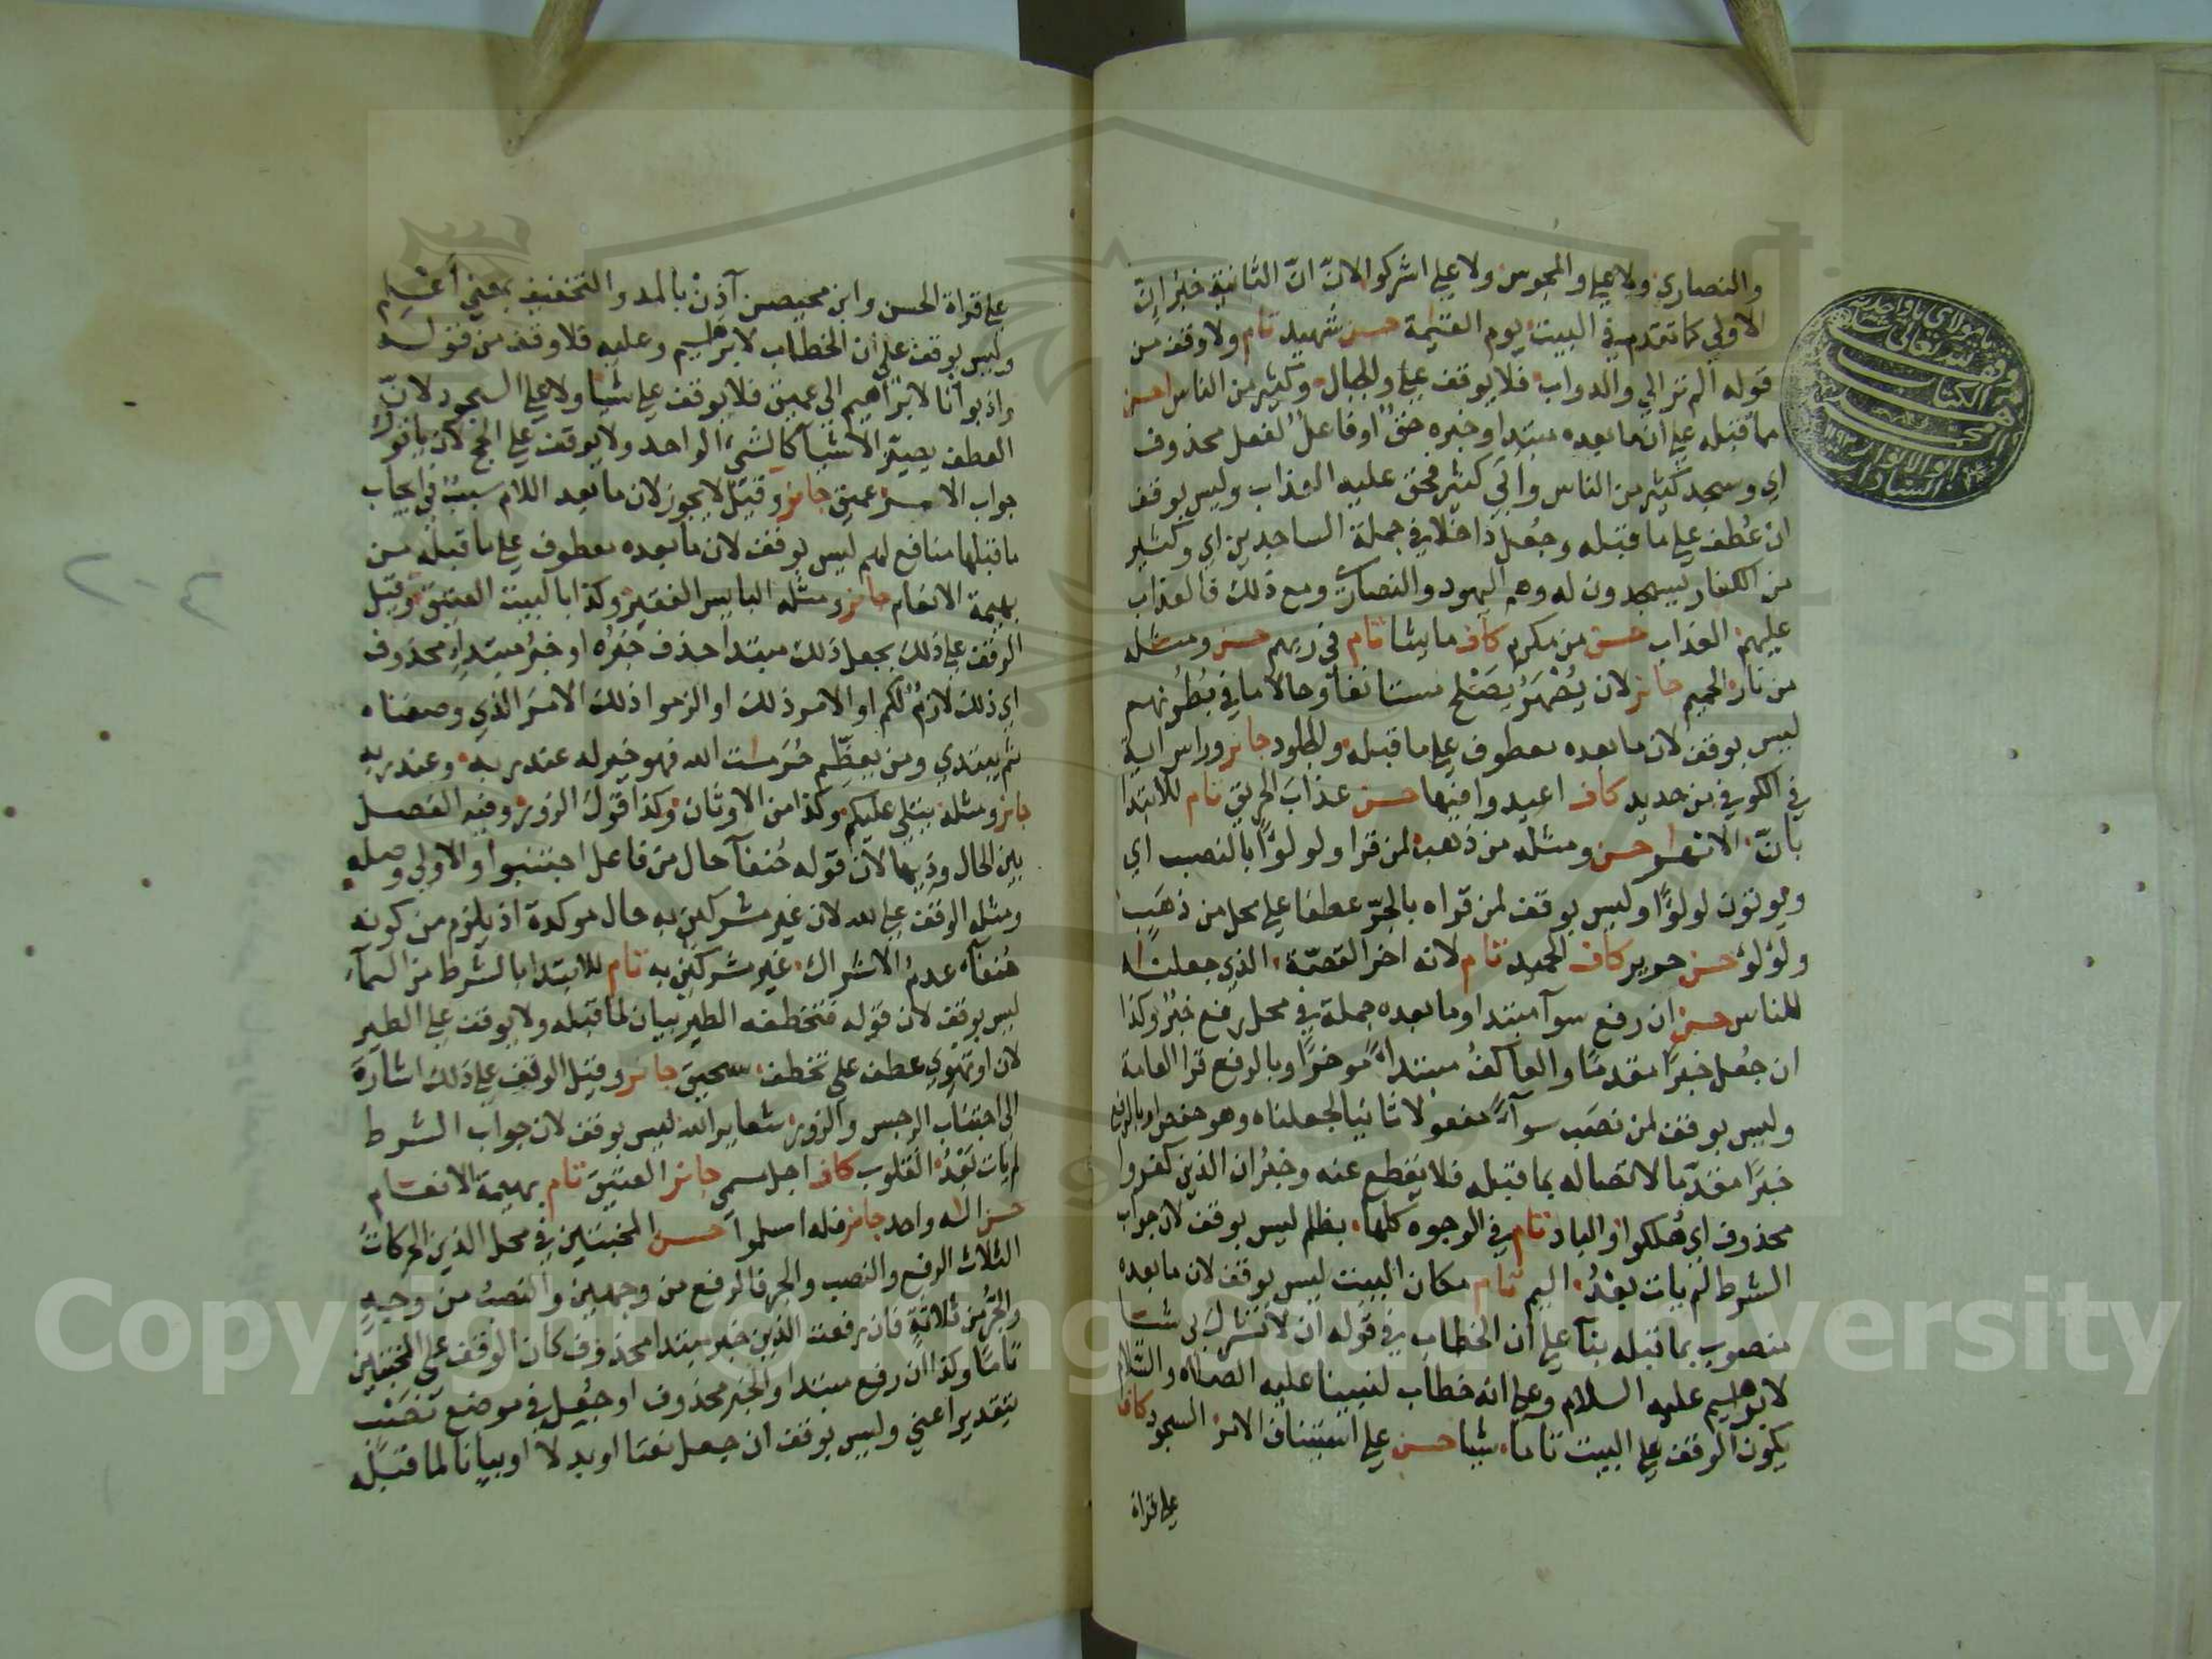 والنصاري ولا علي والمجوس ولا علي اشركوا لانّ انّ الثانية خبر انّ
الاولي كما تقدم في البيت يوم القيمة حسن شهيد تام ولا وقف من
قوله الم تر الي والدواب فلا يوقف علي والجبال وكثير من الناس احسن
مما قبله علي ان ما بعده مبتدا وخبره حق او فاعل لفعل محذوف
اي وسجد كثير من الناس وابي كثير فحق عليه العذاب وليس بوقف
ان عُطف علي ما قبله وجُعل داخلا في جملة الساجدين اي وكثير
من الكفار يسجدون له وهم اليهود والنصاري ومع ذلك فالعذاب
عليهم العذاب حسن من مكرم كاف ما يشا تام في ربهم حسن ومثله
من نار الحميم جائز لان يُصْهَرُ يصلح مستانفا وحالا ما في بطونهم
ليس بوقف لان ما بعده معطوف علي ما قبله والجلود جائز وراس اية
في الكوفي من حديد كاف اعيدوا فيها حسن عذاب الحريق تام للابتدا
بانّ الانهار حسن ومثله من ذهب لمن قرا ولولوًا بالنصب اي
ويوتون لولوًا وليس بوقف لمن قراه بالجرّ عطفا علي محل من ذهب
ولؤلؤ حسن حرير كاف الحميد تام لانه اخر القصّة الذي جعلناه
للناس حسن ان رفع سوآ مبتدا وما بعده جملة في محل رفع خبر وكذا
ان جُعل خبرًا مقدمًا والعاكفُ مبتدا موخرًا وبالرفع قرا العامة
وليس بوقف لمن نصب سوآءً مفعولا ثانيا لجعلناه وهو حفص او بالرفع
خبرًا مقدّما لاتصاله بما قبله فلا يقطع عنه وخبرُ ان الذين كفروا
محذوف اي هُلكوا والباد تام في الوجوه كلها بظلم ليس بوقف لان جواب
الشرط لم يات بعدُ اليم تام مكان البيت ليس بوقف لان ما بعده
منصوب بما قبله بنآ علي ان الخطاب في قوله ان لا تشرك بي شيا
لابرهيم عليه السلام وعلي انه خطاب لنبينا عليه الصلاه والسلام
يكون الوقف علي البيت تاما شيا حسن علي استيناف الامر السجود كاف
علي قراة
علي قراة الحسن وابن محيصن آذِنْ بالمد والتخفيف بمعني أعْلِم
وليس بوقف علي ان الخطاب لابرهيم وعليه فلا وقف من قوله
واذ بوأنا لابراهيم الي عميق فلا يوقف علي شيا ولا علي السجود لانّ
العطف يصيّر الاشيآ كالشيء الواحد ولا يوقف علي الحج لان ياتوك
جواب الامر عميق جائز وقيل لا يجوز لان ما بعد اللام سبب في ايجاب
ما قبلها منافع لهم ليس بوقف لان ما بعده معطوف علي ما قبله من
بهيمة الانعام جائز ومثله البايس الفقير وكذا بالبيت العتيق وقيل
الوقف علي ذلك بجعل ذلك مبتدا حذف خبره او خبرُ مبتداء محذوف
اي ذلك لازمٌ لكم او الامر ذلك او الزموا ذلك الامر الذي وصفناه
ثم يبتدي ومن يعظّم حُرمات الله فهو خير له عند ربه وعند ربه
جائز ومثله يتلي عليكم وكذا من الاوثان وكذا قول الزور وفيه الفصل
بين الحال وذيها لان قوله حُنفآ حال من فاعل اجتنبوا والاولي وصله
ومثله الوقف علي لله لان غير مشركين به حال موكدة اذ يلزم من كونه
حُنفآ عدمُ الاشراك غير مشركين به تام للابتدا بالشرط من السمآء
ليس بوقف لان قوله فتخطفه الطير بيان لما قبله ولا يوقف علي الطير
لان او تهوي عطف علي تخطف سحيق جائز وقيل الوقف علي ذلك اشارة
الي اجتناب الرجس والزور شعاير الله ليس بوقف لان جواب الشرط
لم يات بعدُ القلوب كاف اجل مسمي جائز العتيق تام بهيمة الانعام
حسن اله واحد جائز فله اسلموا حسن المخبتين في محل الذين الحركات
الثلاث الرفع والنصب والجر فالرفع من وجهين والنصبُ من وجهٍ
والجرُّ من ثلاثةٍ فان رفعت الذين خبر مبتدا محذوف كان الوقف علي المخبتين
تامًا وكذا ان رفع مبتدا والخبر محذوف او جُعل في موضع نصب
بتقدير اعني وليس بوقف ان جعل نعتا او بدلا او بيانا لما قبله
Copyright © King Saud University